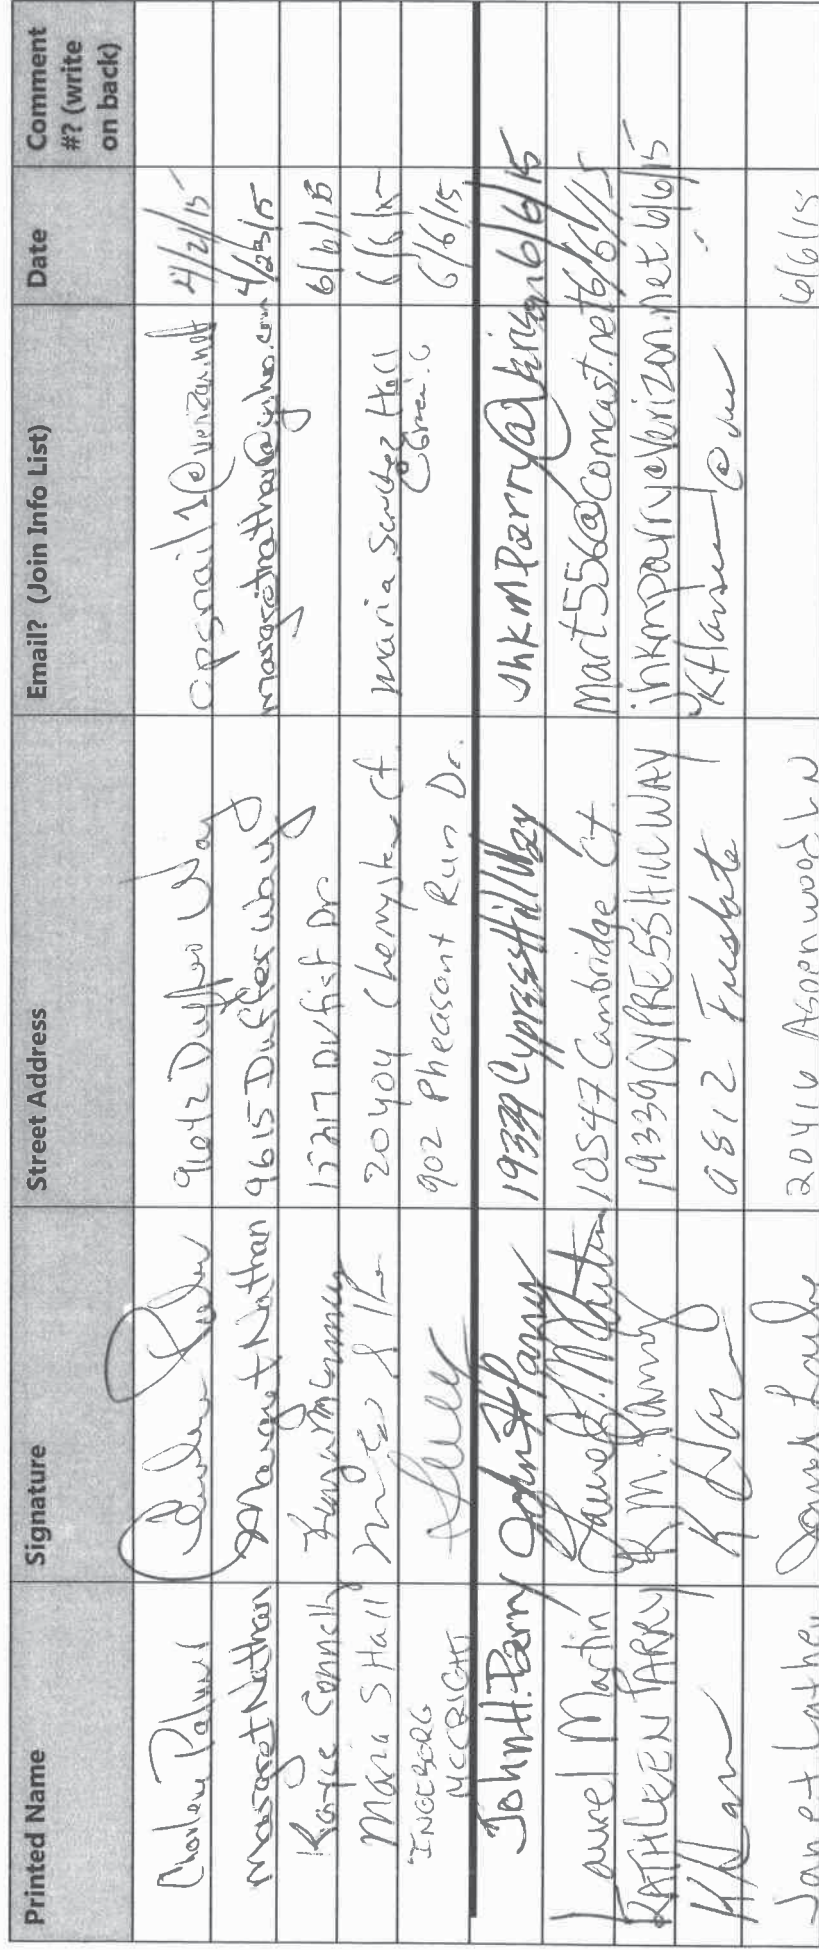 Printed Name Signature Street Address Email? (Join Info List) Date Comment #? (write on back)
Charlene Palmer 9642 Duffer Way 4/21/15
Margaret Nathan Margaret Nathan 9615 Duffer Way 4/23/15
Kayce Connelly Dr 6/6/15
Maria S Hall 20404 Cherrystone Ct. Maria Sanchez Hall @ 6/6/15
INGEBORG MCCRIGHT 902 Pheasant Run Dr. 6/6/15
John H. Parry John H Parry 19339 Cypress Hill Way JhkmParry@ 6/6/15
Laurel Martin Laurel J. Martin 10547 Cambridge Ct. Mart556@comcast.net 6/6/15
KATHLEEN PARRY K M. Parry 19339 CYPRESS HILL WAY jhkmparry@verizon.net 6/6/15
K K @
Janet Lathey Janet 20416 Aspenwood LN 6/6/15